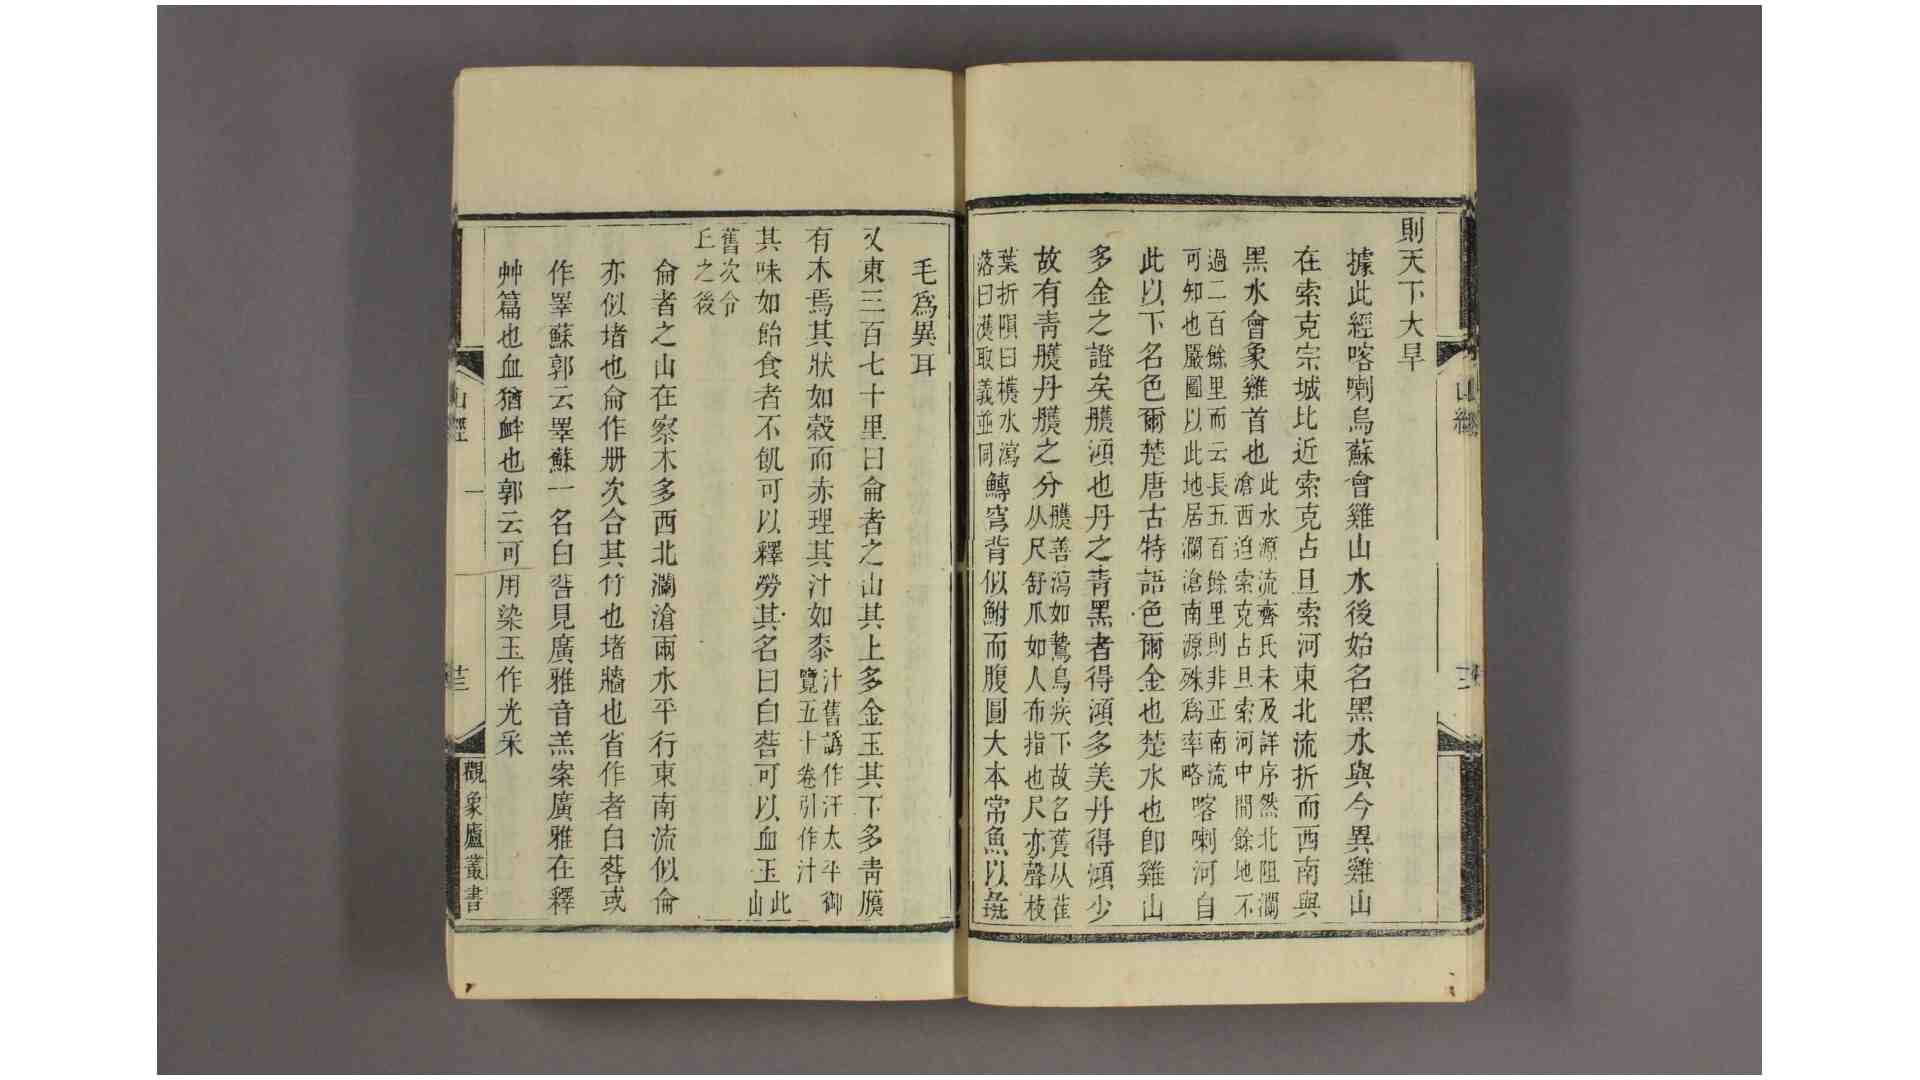 則天下大旱
據此經喀喇烏蘇會雞山水後始名黑水與今異雞山
在索克宗城比近索克占旦索河東北流折而西南與
黑水會象雞首也此水源流齊氏未及詳序然北阻瀾
滄西迫索克占旦索河中間餘地不
過二百餘里而云長五百餘里則非正南流
可知也嚴圖以此地居瀾滄南源殊為率略喀喇河自
此以下名色爾楚唐古特語色爾金也楚水也卽雞山
多金之證矣臒澒也丹之青黑者得澒多美丹得澒少
故有青臒丹臒之分臒善瀉如鷙鳥疾下故名萑从萑
从尺舒爪如人布指也尺亦聲枝
葉折隕曰檴水瀉
落曰濩取義並同鱄穹背似鮒而腹圓大本常魚以彘
毛爲異耳
又東三百七十里曰侖者之山其上多金玉其下多青臒
有木焉其狀如穀而赤理其汁如桼汁舊譌作汗太平御
覽五十卷引作汁
其味如飴食者不飢可以釋勞其名曰白䓘可以血玉此
山
舊次令
丘之後
侖者之山在察木多西北瀾滄兩水平行東南流似侖
亦似堵也侖作册次合其竹也堵牆也省作者白䓘或
作睪蘇郭云睪蘇一名白䓘見廣雅音羔案廣雅在釋
艸篇也血猶衅也郭云可用染玉作光采
山經
一
十三
觀象廬叢書
山經
十二